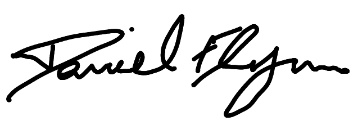 Daniel Flynn